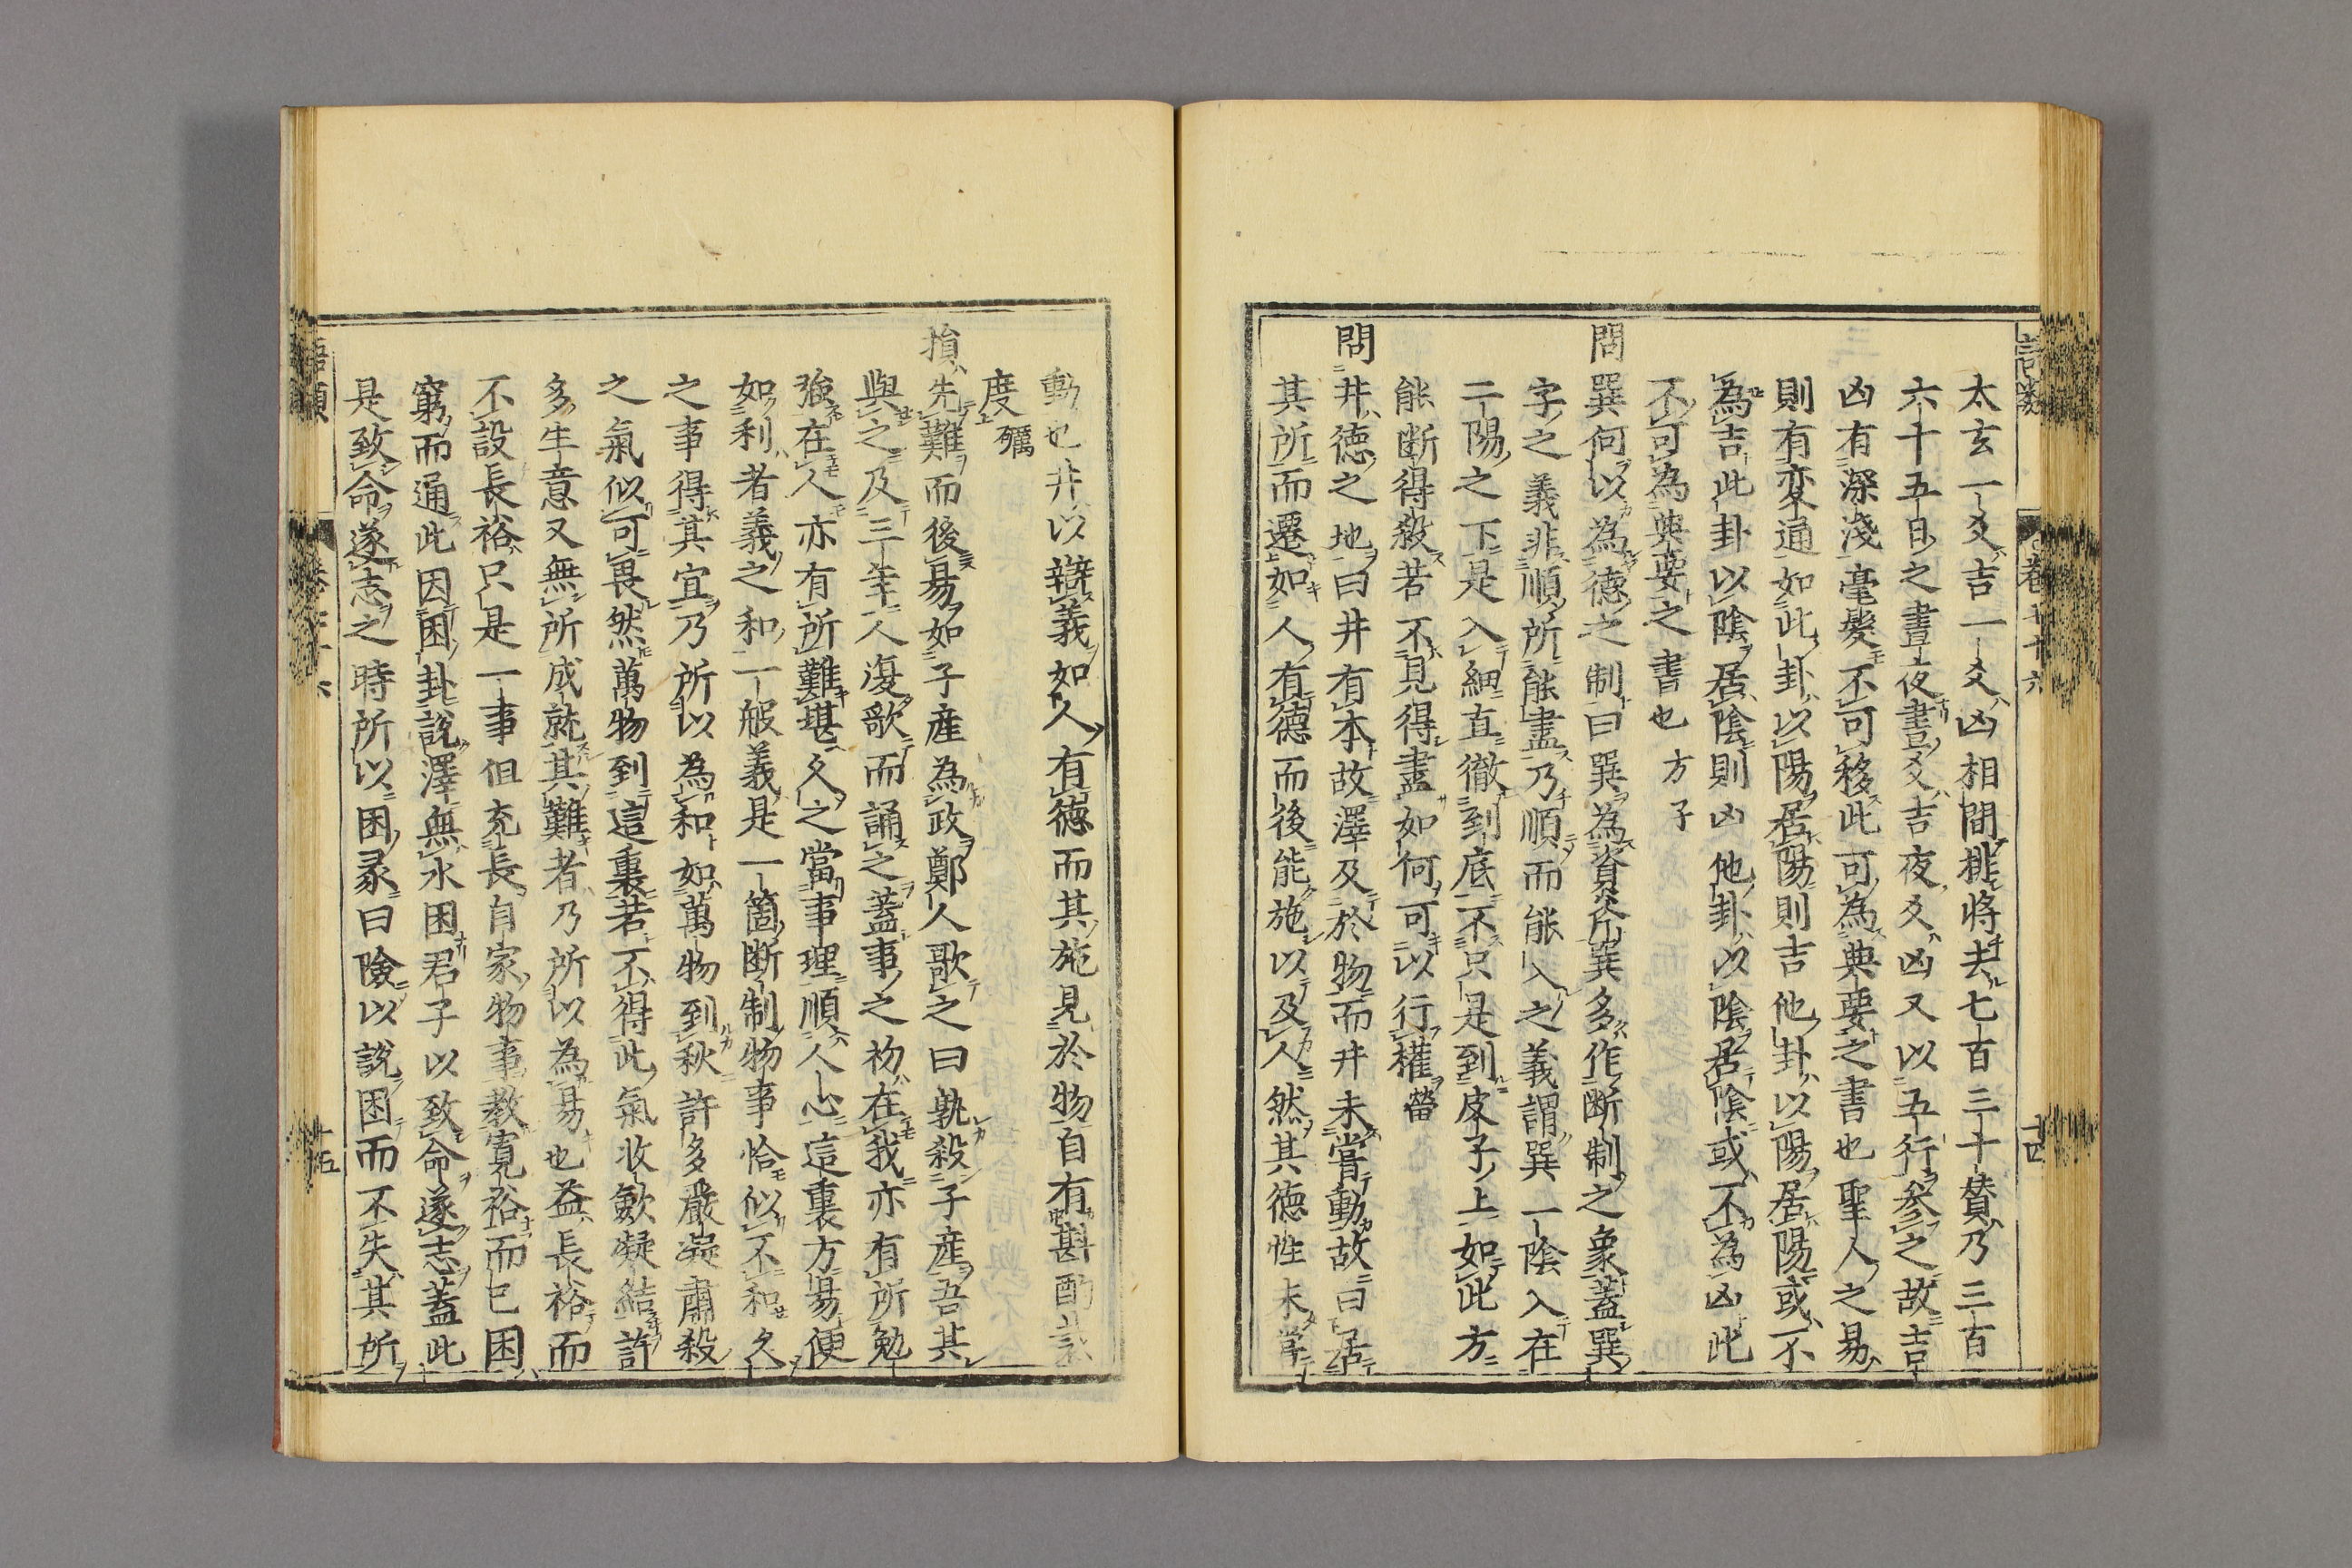 太玄一爻吉一爻凶相間排將去七百三十賛乃三百
六十五日之晝夜晝爻吉夜爻凶又以五行參之故吉
凶有深淺毫髮不可移此可為典要之書也聖人之易
則有変通如此卦以陽居陽則吉他卦以陽居陽或不
為吉此卦以陰居陰則凶他卦以陰居陰或不為凶此
不可為典要之書也方子
問巽何以為德之制曰巽為資斧巽多作断制之象蓋巽
字之義非順所能盡乃順而能入之義謂巽一陰入在
二陽之下是入細直徹到底不只是到皮子上如此方
能断得殺若不見得盡如何可以行權㽦
問井德之地曰井有本故澤及於物而井未嘗動故曰居
其所而遷如人有德而後能施以及人然其德性未嘗
動也井以辯義如人有德而其施見於物自有斟酌裁
度礪
損先難而後易如子産為政鄭人歌之曰孰殺子産吾其
與之及三年人復歌而誦之蓋事之初在我亦有所勉
強在人亦有所難堪久之當事理順人心這裏方易便
如利者義之和一般義是一箇断制物事恰似不和久
之事得其宜乃所以為和如萬物到秋許多嚴凝肅殺
之氣似可畏然萬物到這裏若不得此氣收斂凝結許
多生意又無所成就其難者乃所以為易也益長裕而
不設長裕只是一事但充長自家物事教寛裕而已困
窮而通此因困卦說澤無水困君子以致命遂志蓋此
是致命遂志之時所以困彖曰險以說困而不失其所
語類
卷七十六
十四
十五